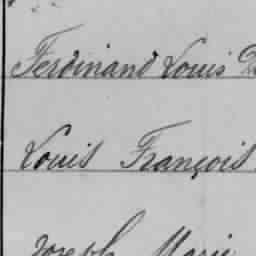 Ferdinand Louis
Louis François
Joseph Marie